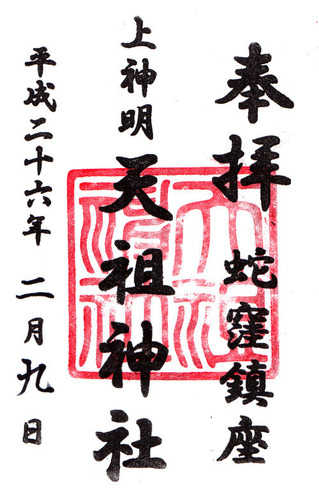 奉拝 蛇窪鎮座
上神明 天祖神社
平成二十六年 二月九日